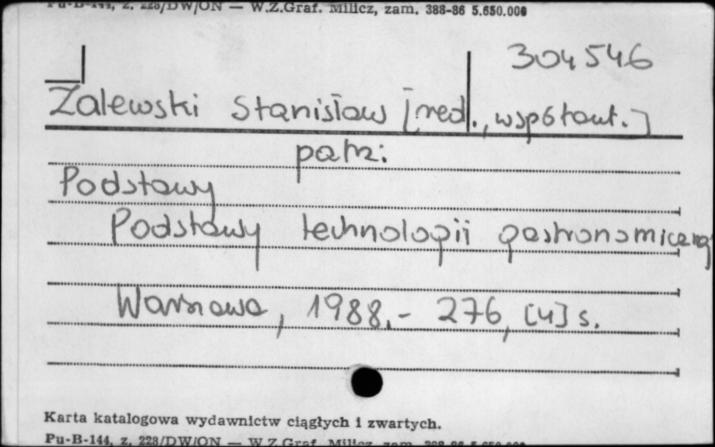 Pu-B-144, z. 228/DW/ON — W.Z.Graf. Milicz, zam. 388-86 5.650.000
304546
Zalewski Stanisław [red., współaut.]
patrz:
Podstawy
Podstawy technologii gastronomicznej
Warszawa, 1988.- 276, [4] s.
Karta katalogowa wydawnictw ciągłych i zwartych.
Pu-B-144, z. 228/DW/ON — W.Z.Graf. Milicz, zam. 388-86 5.650.000